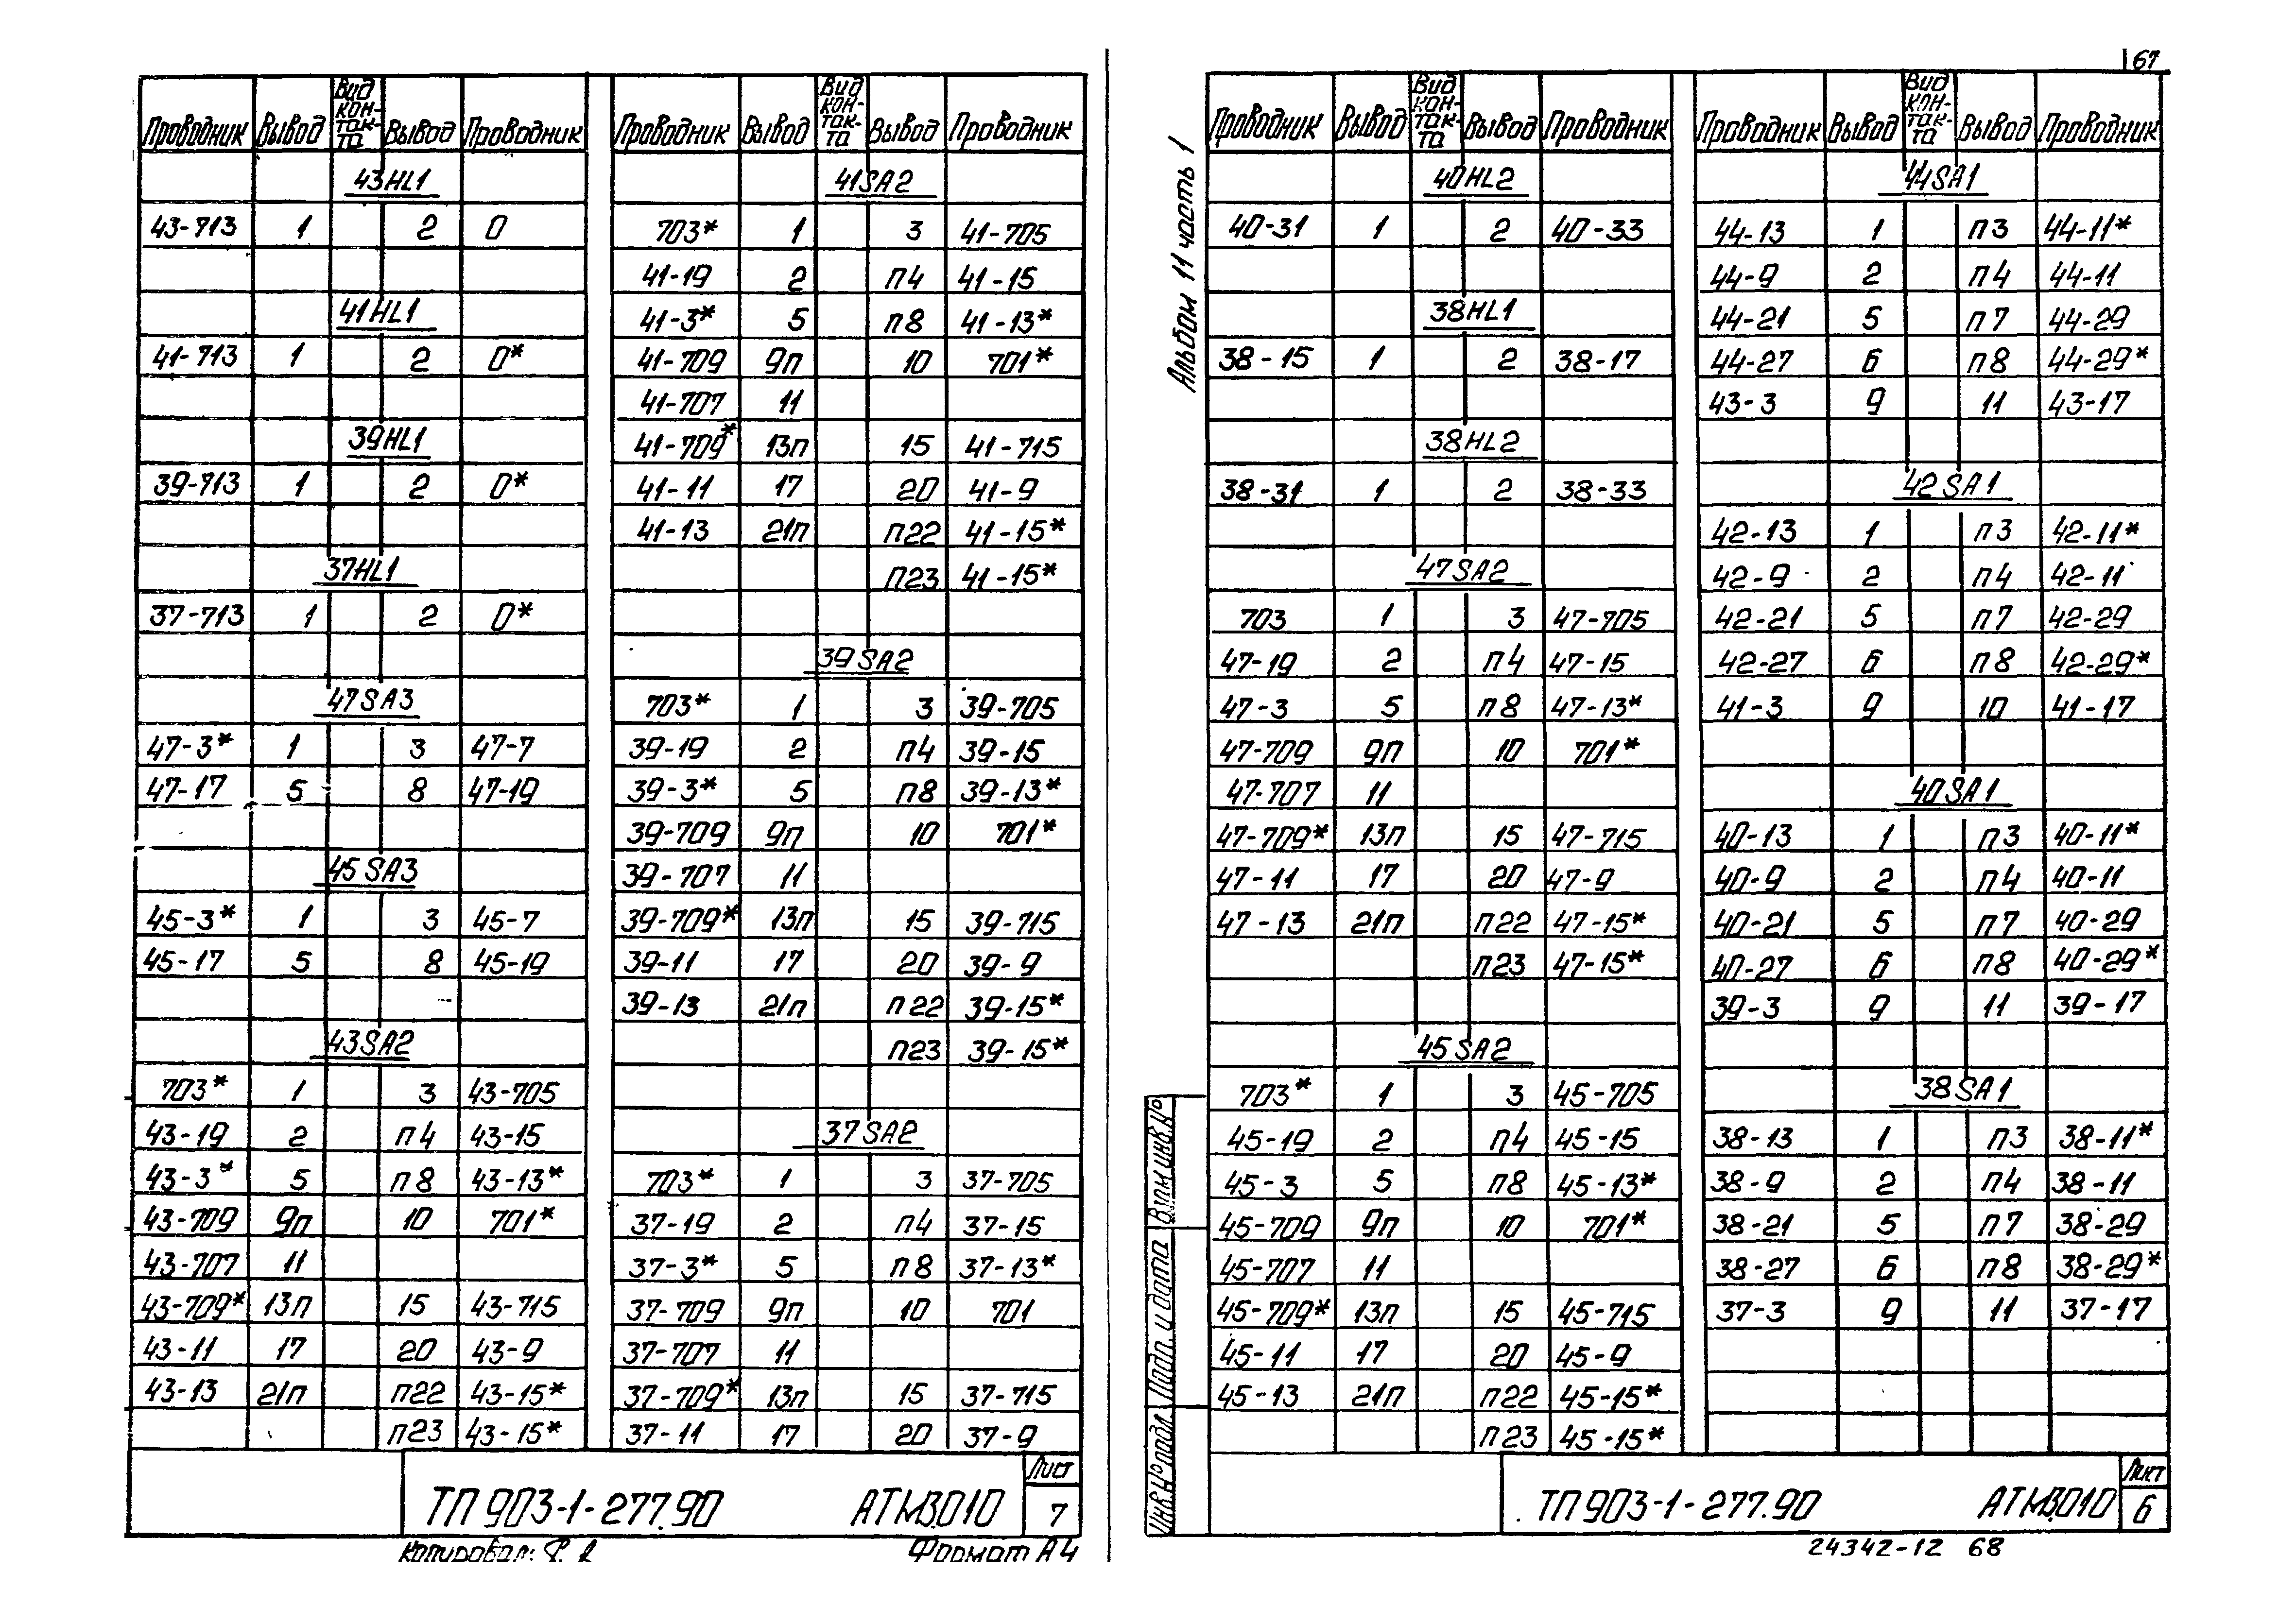 67
Альбом 11 часть 1
Проводник Вывод Вид кон-так-та Вывод Проводник
43HL1
43-713 1 2 0
41HL1
41-713 1 2 0*
39HL1
39-713 1 2 0*
37HL1
37-713 1 2 0*
47SA3
47-3* 1 3 47-7
47-17 5 8 47-19
45SA3
45-3* 1 3 45-7
45-17 5 8 45-19
43SA2
703* 1 3 43-705
43-19 2 п4 43-15
43-3* 5 п8 43-13*
43-709 9п 10 701*
43-707 11
43-709* 13п 15 43-715
43-11 17 20 43-9
43-13 21п п22 43-15*
п23 43-15*
Проводник Вывод Вид кон-так-та Вывод Проводник
41SA2
703* 1 3 41-705
41-19 2 п4 41-15
41-3* 5 п8 41-13*
41-709 9п 10 701*
41-707 11
41-709* 13п 15 41-715
41-11 17 20 41-9
41-13 21п п22 41-15*
п23 41-15*
39SA2
703* 1 3 39-705
39-19 2 п4 39-15
39-3* 5 п8 39-13*
39-709 9п 10 701*
39-707 11
39-709* 13п 15 39-715
39-11 17 20 39-9
39-13 21п п22 39-15*
п23 39-15*
37SA2
703* 1 3 37-705
37-19 2 п4 37-15
37-3* 5 п8 37-13*
37-709 9п 10 701
37-707 11
37-709* 13п 15 37-715
37-11 17 20 37-9
ТП 903-1-277.90 АТМ3.010 Лист 7
Копировал: Формат А4
Проводник Вывод Вид кон-так-та Вывод Проводник
40HL2
40-31 1 2 40-33
38HL1
38-15 1 2 38-17
38HL2
38-31 1 2 38-33
47SA2
703 1 3 47-705
47-19 2 п4 47-15
47-3 5 п8 47-13*
47-709 9п 10 701*
47-707 11
47-709* 13п 15 47-715
47-11 17 20 47-9
47-13 21п п22 47-15*
п23 47-15*
45SA2
703* 1 3 45-705
45-19 2 п4 45-15
45-3 5 п8 45-13*
45-709 9п 10 701*
45-707 11
45-709* 13п 15 45-715
45-11 17 20 45-9
45-13 21п п22 45-15*
п23 45-15*
Проводник Вывод Вид кон-так-та Вывод Проводник
44SA1
44-13 1 п3 44-11*
44-9 2 п4 44-11
44-21 5 п7 44-29
44-27 6 п8 44-29*
43-3 9 11 43-17
42SA1
42-13 1 п3 42-11*
42-9 2 п4 42-11
42-21 5 п7 42-29
42-27 6 п8 42-29*
41-3 9 10 41-17
40SA1
40-13 1 п3 40-11*
40-9 2 п4 40-11
40-21 5 п7 40-29
40-27 6 п8 40-29*
39-3 9 11 39-17
38SA1
38-13 1 п3 38-11*
38-9 2 п4 38-11
38-21 5 п7 38-29
38-27 6 п8 38-29*
37-3 9 11 37-17
Взам инв.Nº
Подп. и дата
Инв.Nº подл
ТП 903-1-277.90 АТМ3.010 Лист 6
24342-12 68